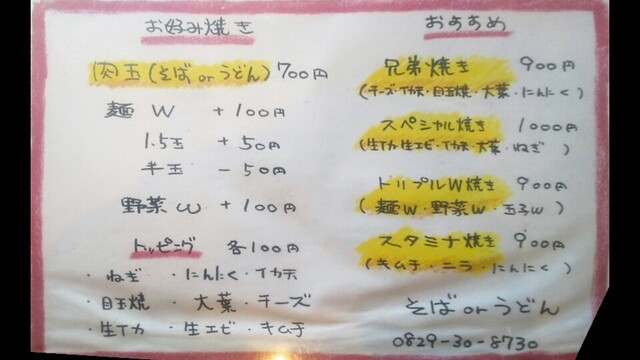 お好み焼き
肉玉(そばorうどん) 700円
麺W +100円
1.5玉 +50円
半玉 -50円
野菜W +100円
トッピング 各100円
・ねぎ ・にんにく・イカ天
・目玉焼 ・大葉・チーズ
・生イカ ・生エビ・キムチ
おすすめ
兄弟焼き 900円
(チーズ・イカ天・目玉焼・大葉・にんにく)
スペシャル焼き 1000円
(生イカ・生エビ・イカ天・大葉・ねぎ)
トリプルW焼き 900円
(麺W・野菜W・玉子W)
スタミナ焼き 900円
(キムチ・ニラ・にんにく)
そばorうどん
0829-30-8730